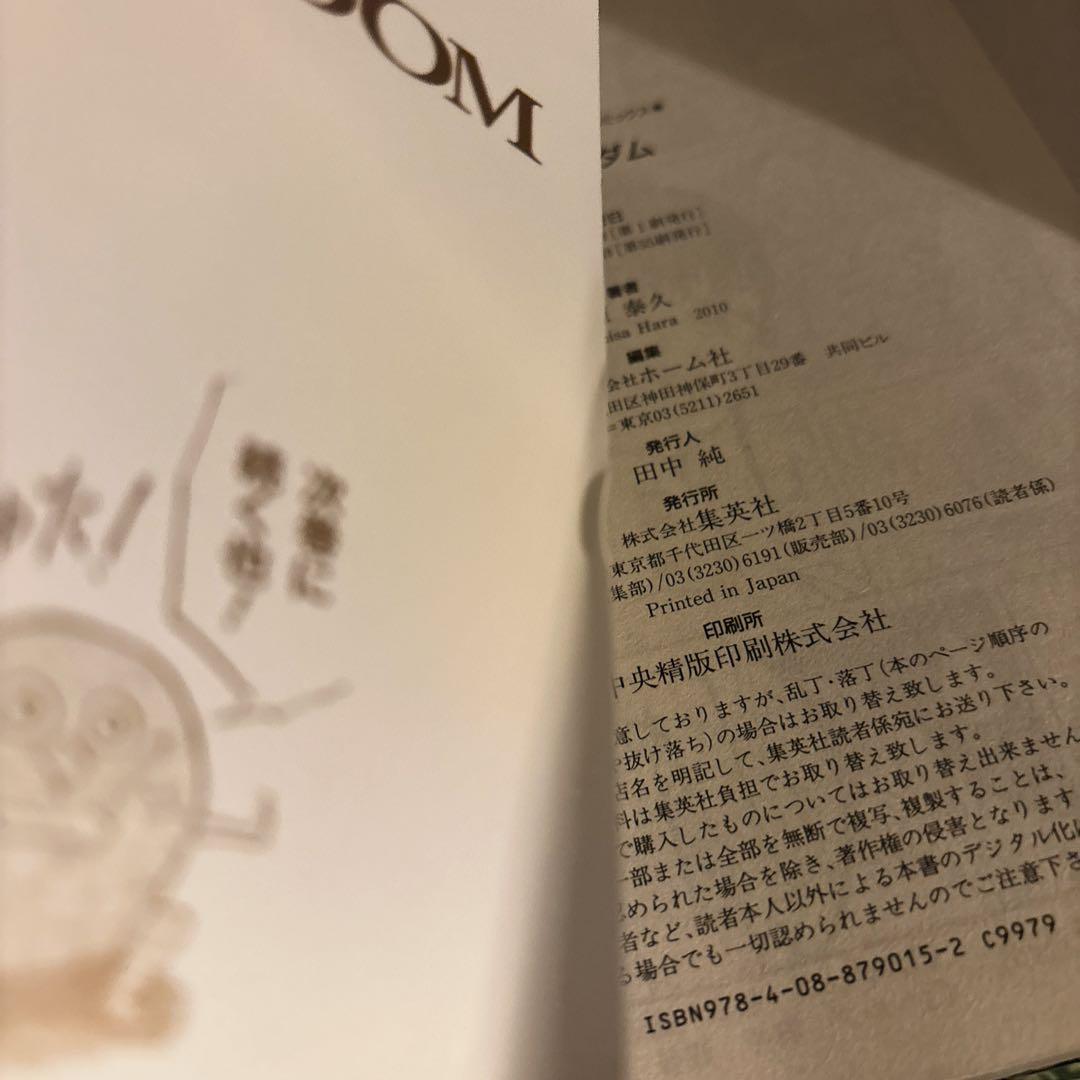 OM
次巻に
続くぜ!
ダム
[第1刷発行]
[第55刷発行]
著者
泰久
isa Hara 2010
編集
会社ホーム社
田区神田神保町3丁目29番 共同ビル
=東京03(5211)2651
発行人
田中 純
発行所
株式会社集英社
東京都千代田区一ツ橋2丁目5番10号
集部)/03(3230)6191(販売部)/03(3230)6076(読者係)
Printed in Japan
印刷所
中央精版印刷株式会社
意しておりますが、乱丁・落丁(本のページ順序の
抜け落ち)の場合はお取り替え致します。
店名を明記して、集英社読者係宛にお送り下さい。
料は集英社負担でお取り替え致します。
で購入したものについてはお取り替え出来ません
一部または全部を無断で複写、複製することは、
認められた場合を除き、著作権の侵害となります
者など、読者本人以外による本書のデジタル化は
る場合でも一切認められませんのでご注意下さ
ISBN978-4-08-879015-2 C9979